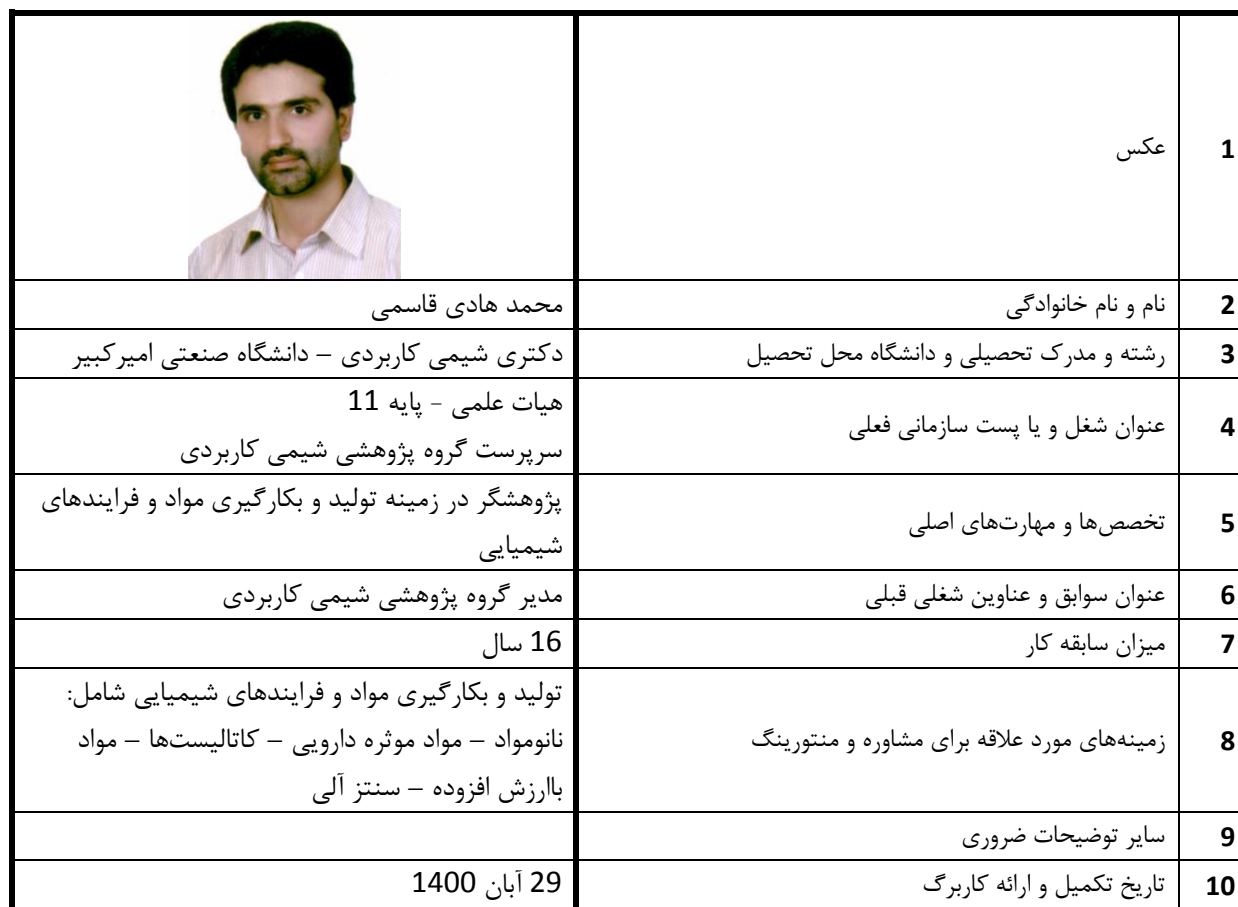 1 عکس
2 نام و نام خانوادگی محمد هادی قاسمی
3 رشته و مدرک تحصیلی و دانشگاه محل تحصیل دکتری شیمی کاربردی – دانشگاه صنعتی امیرکبیر
4 عنوان شغل و یا پست سازمانی فعلی هیات علمی - پایه 11
سرپرست گروه پژوهشی شیمی کاربردی
5 تخصص‌ها و مهارت‌های اصلی پژوهشگر در زمینه تولید و بکارگیری مواد و فرایندهای
شیمیایی
6 عنوان سوابق و عناوین شغلی قبلی مدیر گروه پژوهشی شیمی کاربردی
7 میزان سابقه کار 16 سال
8 زمینه‌های مورد علاقه برای مشاوره و منتورینگ تولید و بکارگیری مواد و فرایندهای شیمیایی شامل:
نانومواد – مواد موثره دارویی – کاتالیست‌ها – مواد
باارزش افزوده – سنتز آلی
9 سایر توضیحات ضروری
10 تاریخ تکمیل و ارائه کاربرگ 29 آبان 1400